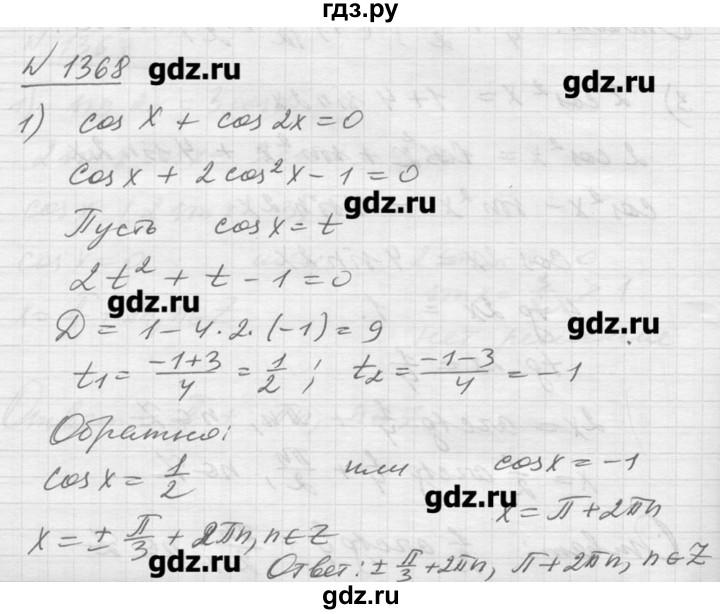 гдз.ру
N 1368 gdz.ru gdz.ru
1) cos x + cos 2x = 0
cos x + 2 cos² x - 1 = 0
gdz.ru
Пусть cos x = t
2t² + t - 1 = 0
gdz.ru
Д = 1 - 4 · 2 · (-1) = 9 gdz.ru
t₁ = (-1+3)/4 = 1/2 ; t₂ = (-1-3)/4 = -1
Обратно:
cos x = 1/2 или cos x = -1
gdz.ru
x = π + 2πn
x = ± π/3 + 2πn, n ∈ Z
gdz.ru
Ответ: ± π/3 + 2πn, π + 2πn, n ∈ Z